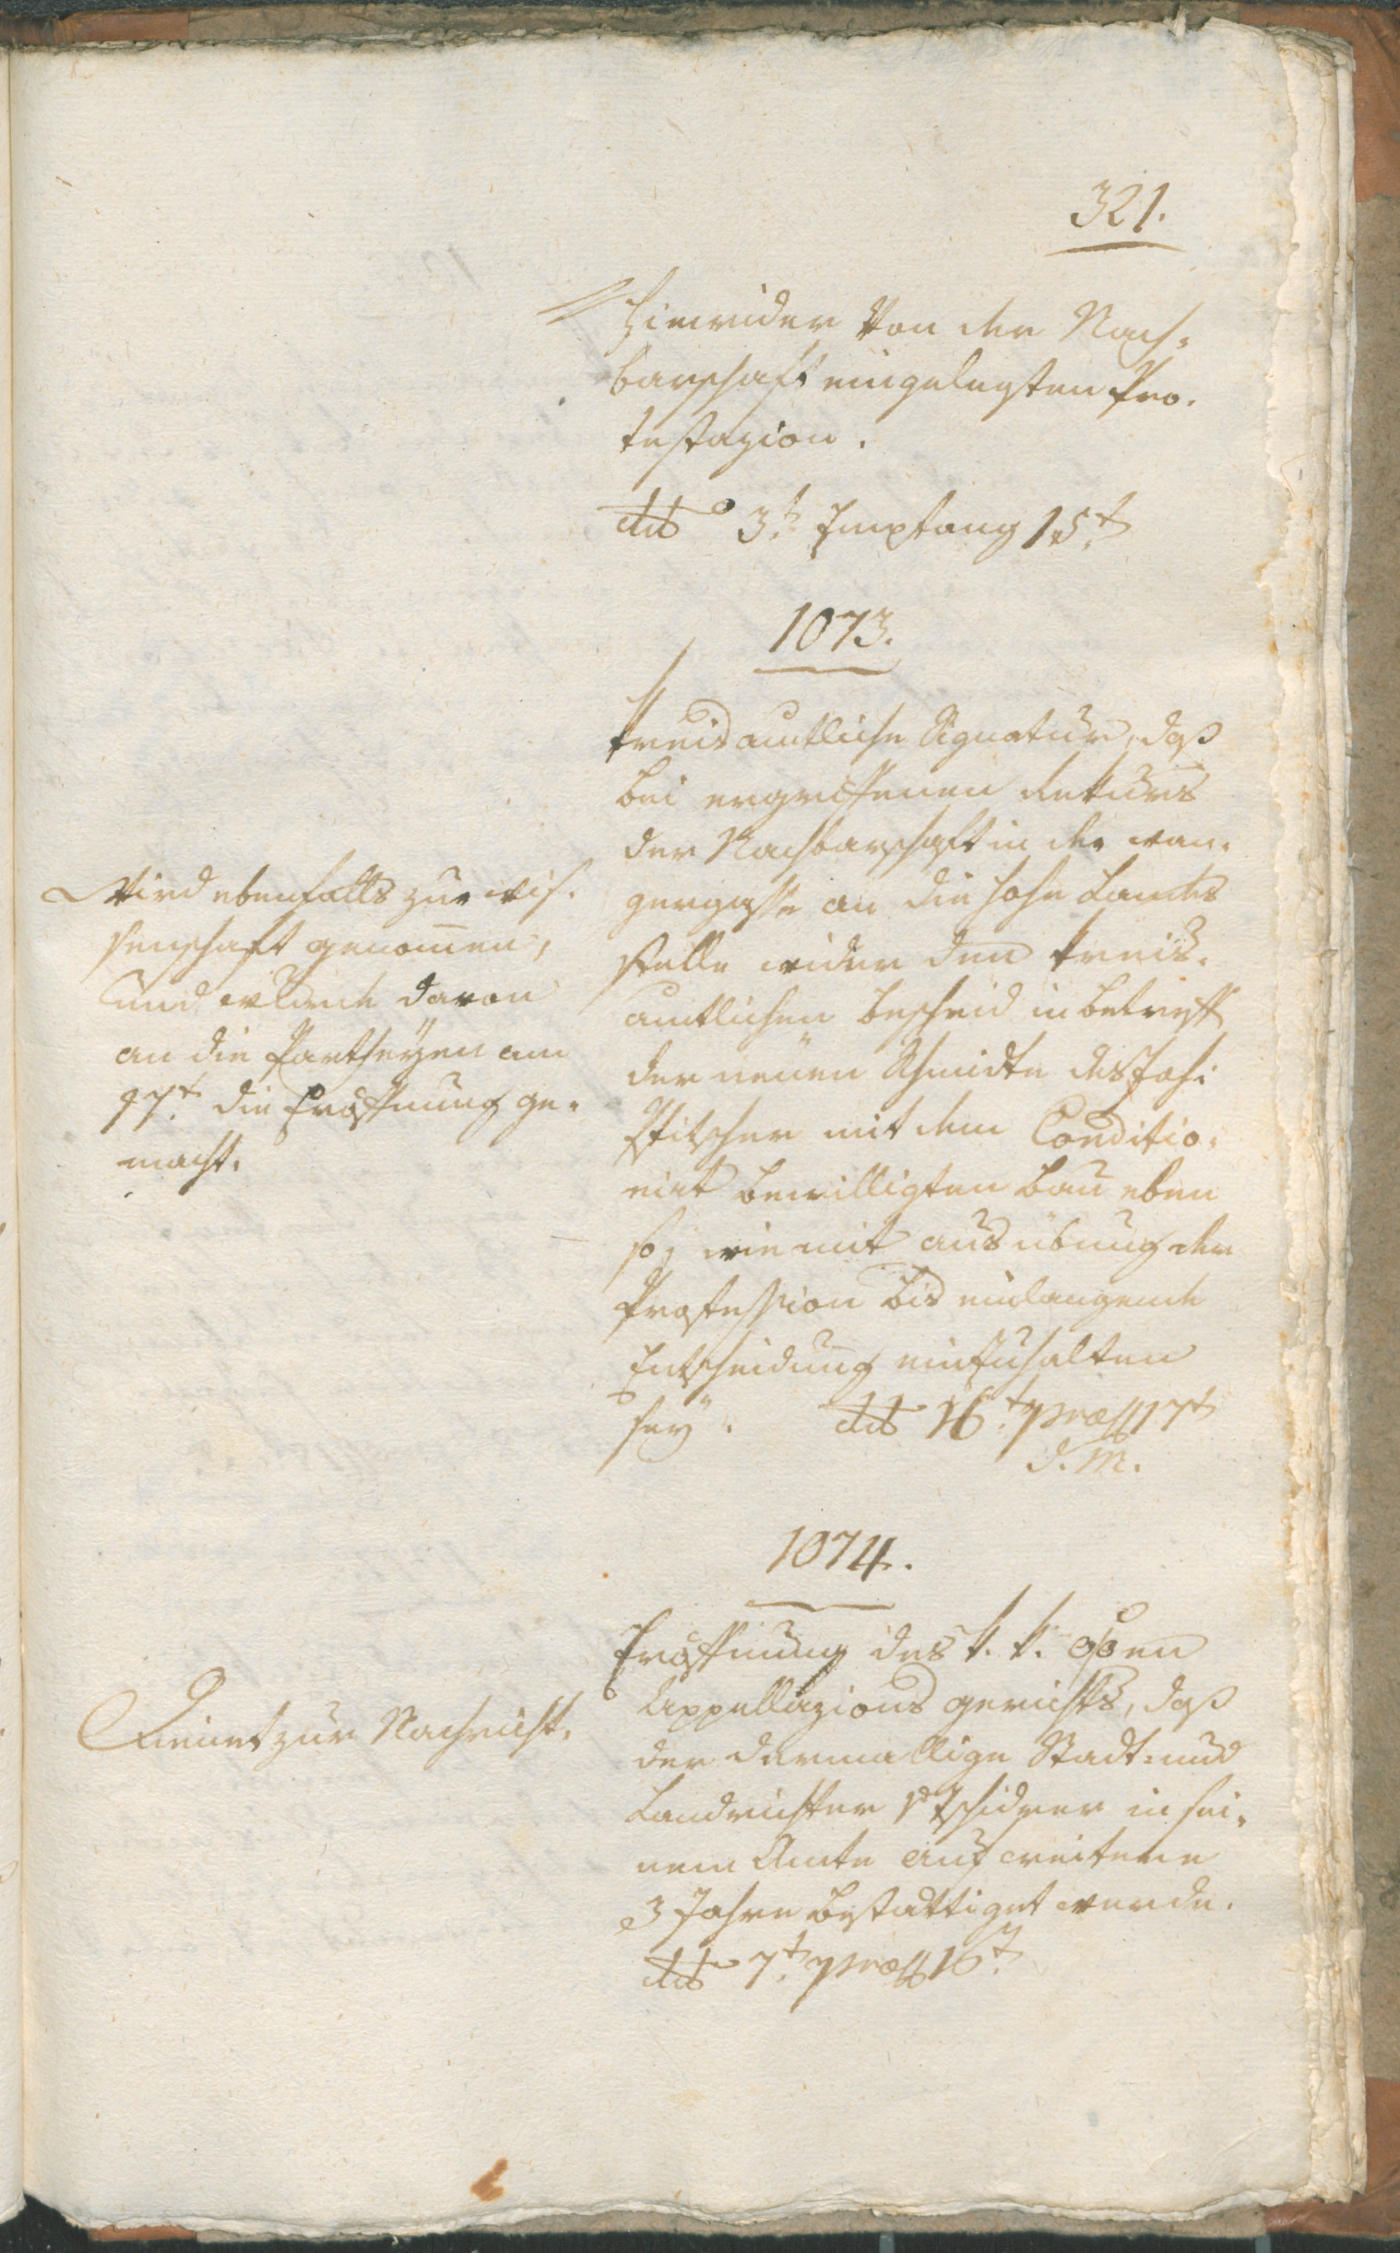 321.
hinwider Von der Nach-
barschaft eingelegten Pro-
testazion.
ddo 3t. Empfang 15t.
1073.
Kreisamtliche Signatur, daß
bei ergriffenen Rekurs
der Nachbarschaft in der wan-
gergasse an die hohe Landes
stelle wider den kreis-
amtlichen Bescheid in betreff
der neuen Schmidte des Joh:
Pitscher mit dem Conditio-
nirt bewilligten Bau eben
so, wie mit ausübung der
Profession bis einlangende
Entscheidung einzuhalten
sey. ddo 16t. praes 17t
d. M.
Wird ebenfalls zur wis-
senschaft genommen,
und wurde davon
an die Partheyen am
17t. die Eröffnung ge-
macht.
1074.
Eröffnung des k. k.
Appellazions gerichts, daß
der dermallige Stadt- und
Landrichter in sei-
nem Amte auf weitere
3 Jahre bestättiget werde.
ddo 7t. praes 16t.
Dienet zur Nachricht.